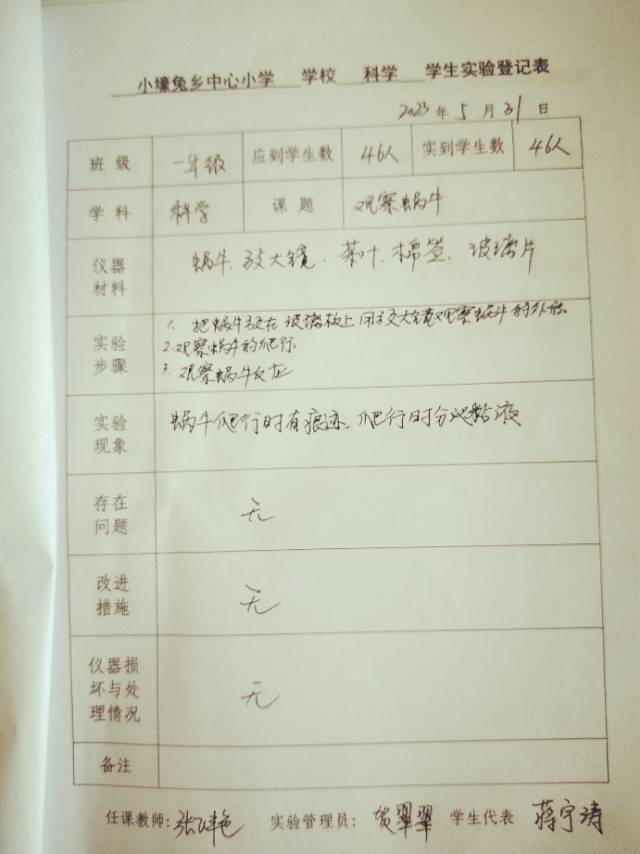 小壕兔乡中心小学 学校 科学 学生实验登记表
2023年5月31日
班级 一年级 应到学生数 46人 实到学生数 46人
学科 科学 课题 观察蜗牛
仪器材料 蜗牛、放大镜、菜叶、棉签、玻璃片
实验步骤 1. 把蜗牛放在玻璃板上,用放大镜观察蜗牛的外形.
2. 观察蜗牛的爬行.
3. 观察蜗牛反应
实验现象 蜗牛爬行时有痕迹,爬行时分泌黏液
存在问题 无
改进措施 无
仪器损坏与处理情况 无
备注
任课教师: 张 艳 实验管理员: 贺翠翠 学生代表 蒋宇涛